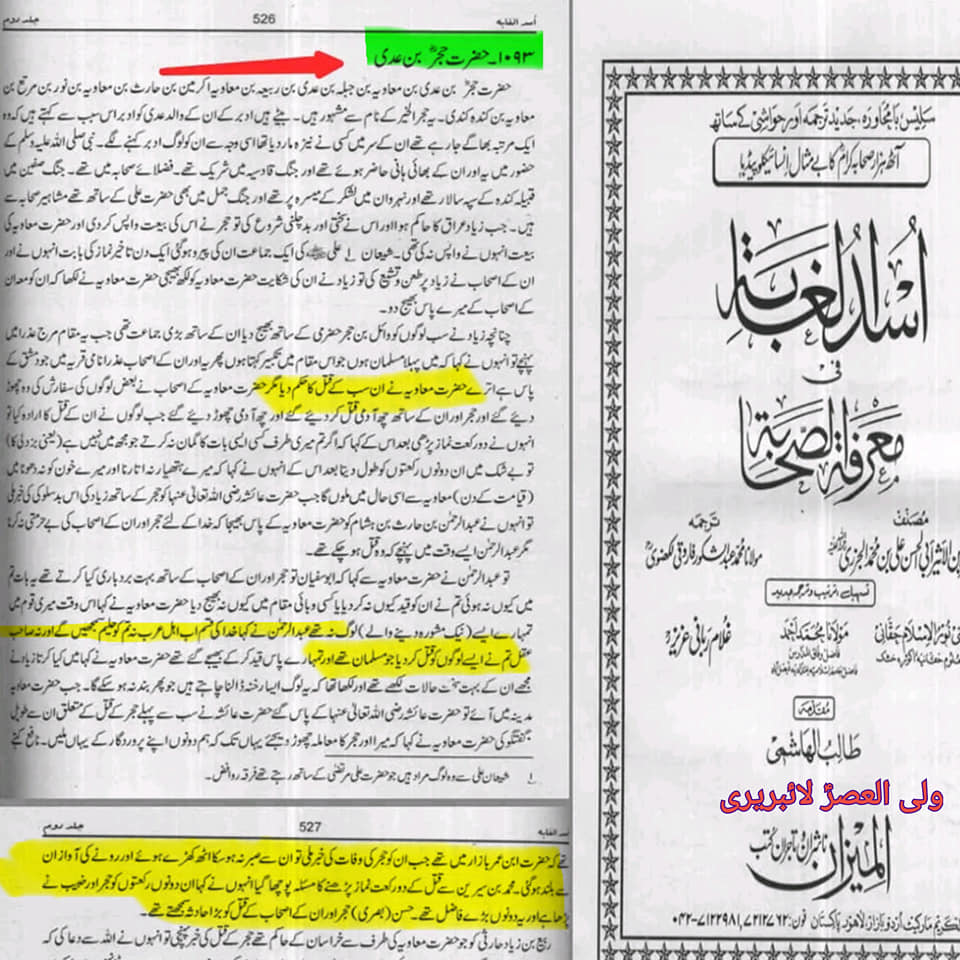 جلد دوم
526
اُسد الغابہ
۱۰۹۳۔ حضرت حجرؓ بن عدی
حضرت حجرؓ بن عدی بن معاویہ بن جبلہ بن عدی بن ربیعہ بن معاویہ اکرمین بن حارث بن معاویہ بن ثور بن مرتع بن
معاویہ بن کندہ کندی۔ یہ حجر الخیر کے نام سے مشہور ہیں۔ بیٹے ہیں ادبر کے ان کے والد عدی کو ادبر اس سبب سے کہتے ہیں کہ وہ
ایک مرتبہ بھاگے جارہے تھے ان کے سر میں کسی نے نیزہ مار دیا تھا اسی وجہ سے ان کو لوگ ادبر کہنے لگے۔ نبی صلی اللہ علیہ وسلم کے
حضور میں یہ اور ان کے بھائی ہانی حاضر ہوئے تھے اور جنگ قادسیہ میں شریک تھے۔ فضلائے صحابہ میں تھے۔ جنگ صفین میں
قبیلہ کندہ کے سپہ سالار تھے اور نہروان میں لشکر کے میسرہ پر تھے اور جنگ جمل میں بھی حضرت علی کے ساتھ تھے مشاہیر صحابہ سے
ہیں۔ جب زیاد عراق کا حاکم ہوا اور اس نے سختی اور بدچلنی شروع کی تو حجر نے اس کی بیعت واپس کردی اور حضرت معاویہ کی
بیعت انہوں نے واپس نہ کی تھی۔ شیعان ۱ علی کی ایک جماعت ان کی پیرو ہوگئی ایک دن تاخیر نماز کی بابت انہوں نے اور
ان کے اصحاب نے زیاد پر طعن و تشنیع کی تو زیاد نے ان کی شکایت حضرت معاویہ کو لکھ بھیجی حضرت معاویہ نے لکھا کہ ان کو معان
کے اصحاب کے میرے پاس بھیج دو۔
چنانچہ زیاد نے سب لوگوں کو وائل بن حجر حضرمی کے ساتھ بھیج دیا ان کے ساتھ بڑی جماعت تھی جب یہ مقام مرج عذرا میں
پہنچے تو انہوں نے کہا کہ میں پہلا مسلمان ہوں جو اس مقام میں تکبیر کہتا ہوں پھر یہ اور ان کے اصحاب عذرا نامی قریہ میں جو دمشق کے
پاس ہے اترے حضرت معاویہ نے ان سب کے قتل کا حکم دیا مگر حضرت معاویہ کے اصحاب نے بعض لوگوں کی سفارش کی وہ چھوڑ
دیئے گئے اور حجر اور ان کے ساتھ چھ آدمی قتل کر دیئے گئے اور چھ آدمی چھوڑ دیئے گئے جب لوگوں نے ان کے قتل کا ارادہ کیا تو
انہوں نے دو رکعت نماز پڑھی بعد اس کے کہا کہ اگر تم میری طرف کسی ایسی بات کا گمان نہ کرتے جو مجھ میں نہیں ہے (یعنی بزدلی کا)
تو بے شک میں ان دونوں رکعتوں کو طول دیتا بعد اس کے انہوں نے کہا کہ میرے ہتھیار نہ اتارنا اور میرے خون کو نہ دھونا میں
(قیامت کے دن) معاویہ سے اسی حال میں ملوں گا جب حضرت عائشہ رضی اللہ تعالیٰ عنہا کو حجر کے ساتھ زیاد کی اس بدسلوکی کی خبر ملی
تو انہوں نے عبدالرحمٰن بن حارث بن ہشام کو حضرت معاویہ کے پاس بھیجا کہ خدا کے لئے حجر اور ان کے اصحاب کی بے حرمتی نہ کرنا
مگر عبدالرحمٰن ایسے وقت میں پہنچے کہ وہ قتل ہو چکے تھے۔
تو عبدالرحمٰن نے حضرت معاویہ سے کہا کہ ابوسفیان تو حجر اور ان کے اصحاب کے ساتھ بہت بردباری کیا کرتے تھے یہ بات تم
میں کیوں نہ ہوئی تم نے ان کو قید کیوں نہ کردیا یا کسی وبائی مقام میں کیوں نہ بھیج دیا حضرت معاویہ نے کہا اس وقت میری قوم میں
تمہارے ایسے (نیک مشورہ دینے والے) لوگ نہ تھے عبدالرحمٰن نے کہا خدا کی قسم اب اہل عرب نہ تم کو حلیم سمجھیں گے اور نہ صاحب
عقل تم نے ایسے لوگوں کو قتل کردیا جو مسلمان تھے اور تمہارے پاس قید کرکے بھیجے گئے تھے حضرت معاویہ نے کہا میں کیا کرتا زیاد نے
مجھے ان کے بہت سخت حالات لکھے تھے اور لکھا تھا کہ یہ لوگ ایسا رخنہ ڈالنا چاہتے ہیں جو پھر بند نہ ہو سکے گا۔ جب حضرت معاویہ
مدینہ میں آئے تو حضرت عائشہ رضی اللہ تعالیٰ عنہا کے پاس گئے حضرت عائشہ نے سب سے پہلے حجر کے قتل کے متعلق ان سے طویل
گفتگو کی حضرت معاویہ نے کہا کہ میرا اور حجر کا معاملہ چھوڑ دیجئے یہاں تک کہ ہم دونوں اپنے پروردگار کے یہاں ملیں۔ نافع کہتے
۱ شیعان علی سے وہ لوگ مراد ہیں جو حضرت علی مرتضیٰ کے ساتھ رہتے تھے نہ فرقہ روافض۔
جلد دوم
527
اسد الغابہ
تھے کہ حضرت ابن عمر بازار میں تھے جب ان کو حجر کی وفات کی خبر ملی تو ان سے صبر نہ ہوسکا اٹھ کھڑے ہوئے اور رونے کی آواز ان
سے بلند ہوگئی۔ محمد بن سیرین سے قتل کے دو رکعت نماز پڑھنے کا مسئلہ پوچھا گیا انہوں نے کہا ان دونوں رکعتوں کو حجر اور خبیب نے
پڑھا ہے اور یہ دونوں بڑے فاضل تھے۔ حسن (بصری) حجر اور ان کے اصحاب کے قتل کو بڑا حادثہ سمجھتے تھے۔
ربیع بن زیاد حارثی کو جو حضرت معاویہ کی طرف سے خراسان کے حاکم تھے حجر کے قتل کی خبر پہنچی تو انہوں نے اللہ سے دعا کی کہ
سلیس بامحاورہ، جدید ترجمہ اور حواشی کے ساتھ
آٹھ ہزار صحابہ کرامؓ کا بے مثال انسائیکلوپیڈیا
اُسْدُ الغَابَة
فی
مَعرفَةِ الصَّحَابَة
مُصنّف
ابن الاثیر ابی الحسن علی بن محمد الجزری
ترجمہ
مولانا محمد عبدالشکور فاروقی لکھنوی
تسہیل، ترتیب و ترجمہ جدید
نور الاسلام حقانی
مولانا محمد احمد
غلام ربانی عزیز
مُقدّمہ
طالب الہاشمی
ولی العصرؑ لائبریری
المیزان
ناشران و تاجران کتب
الکریم مارکیٹ اُردو بازار لاہور پاکستان فون: ۷۲۱۲۷۶۲، ۷۱۲۲۹۸۱-۰۴۲